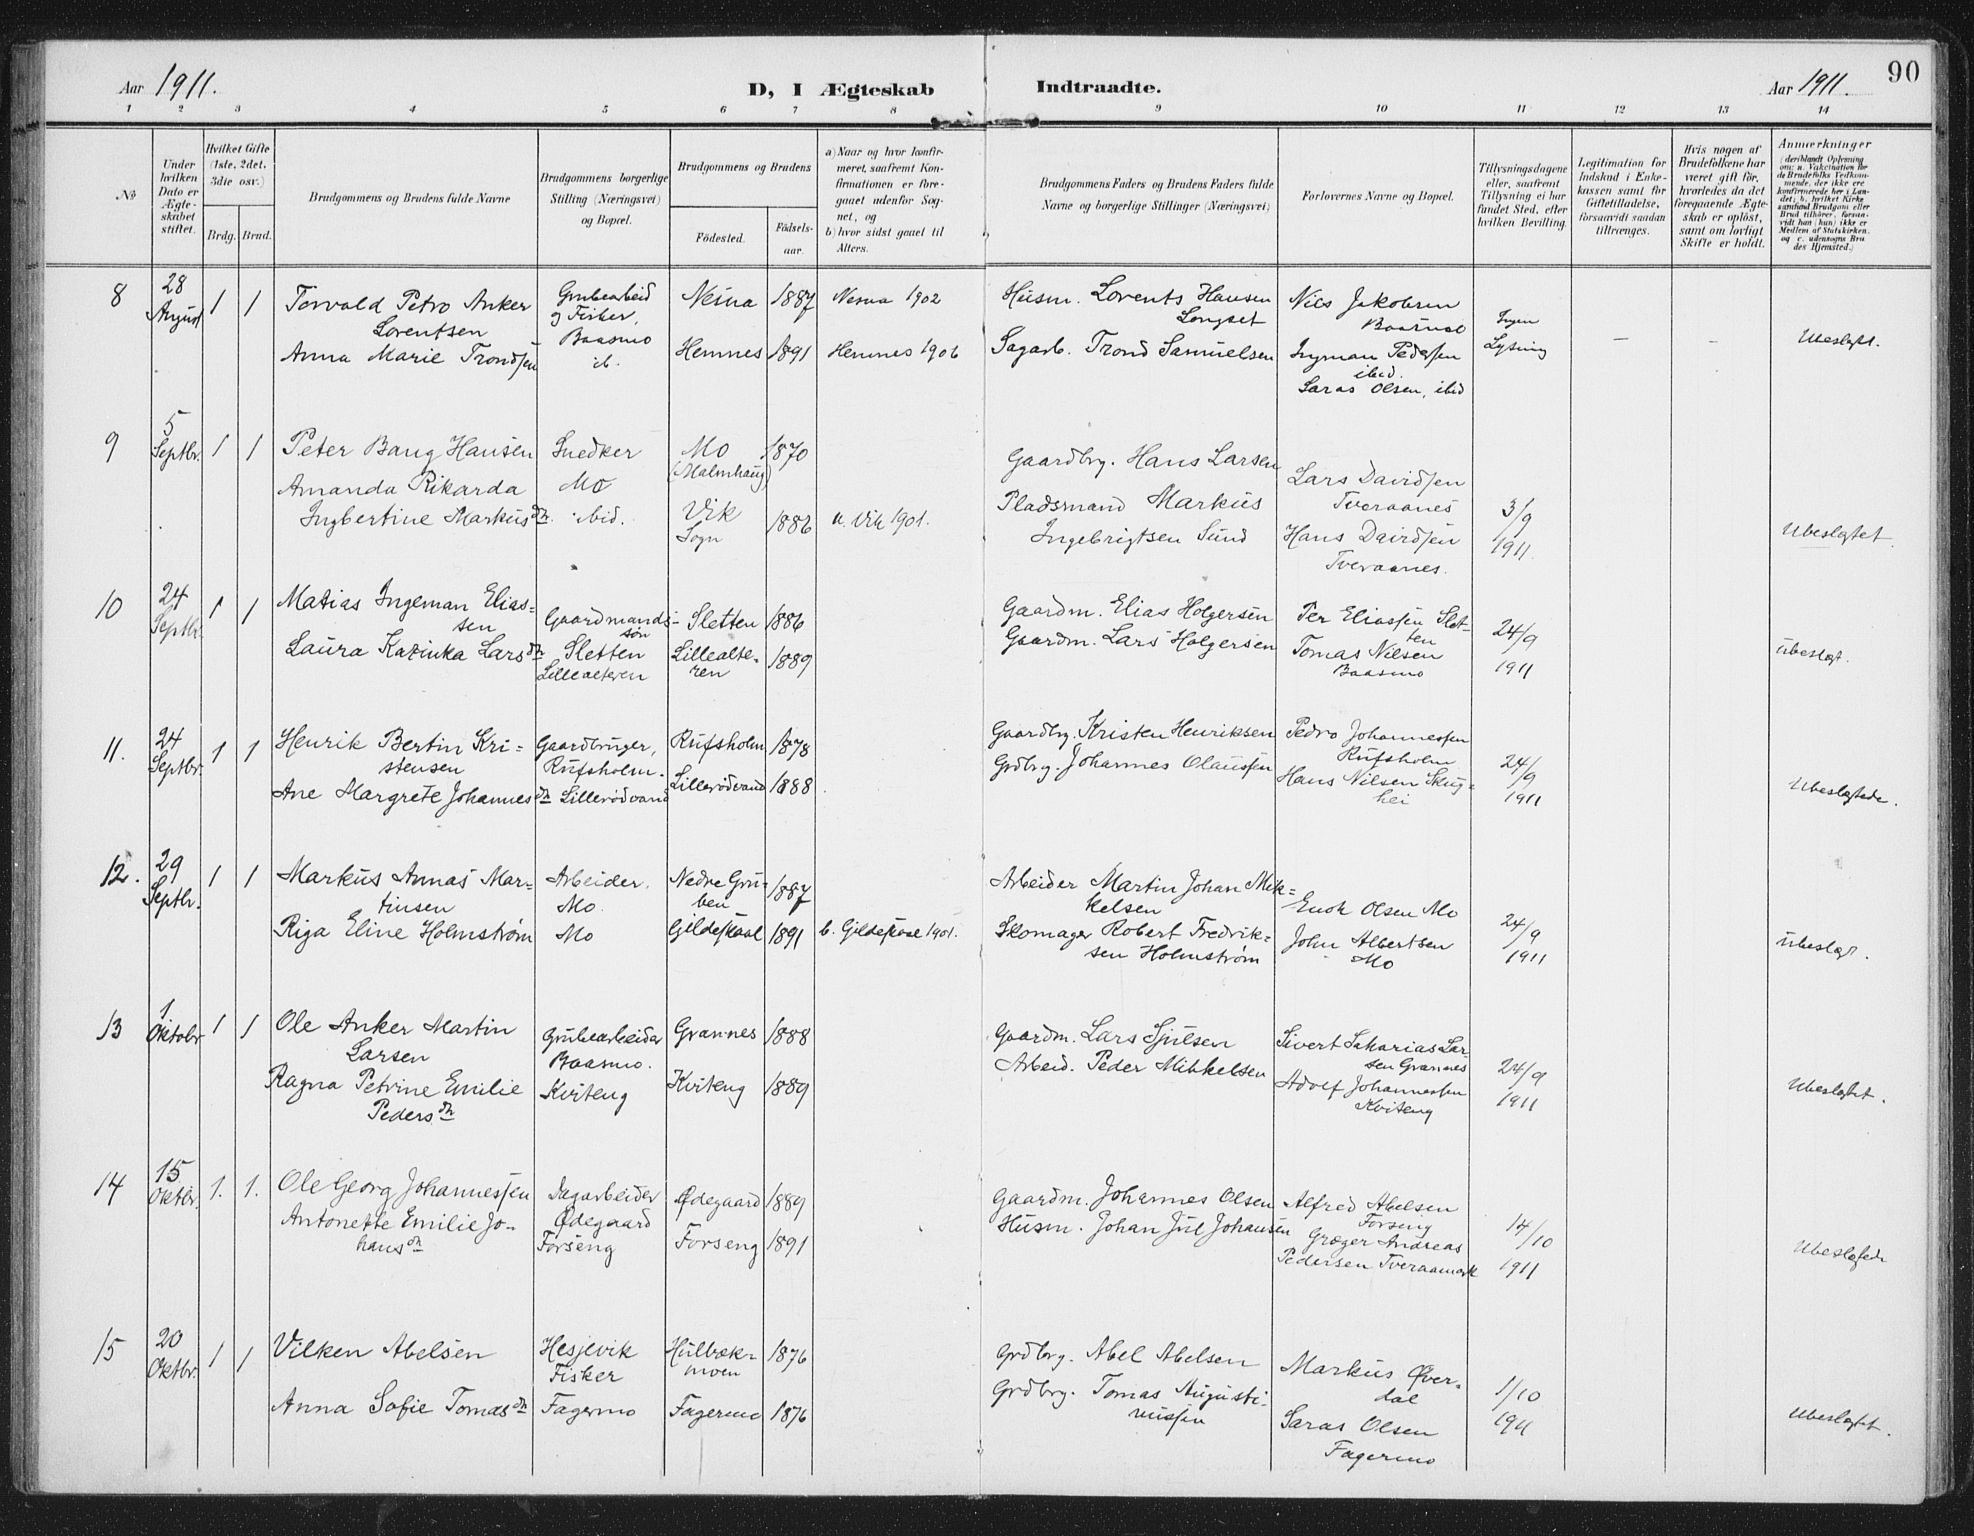 Aar 1911. D, I Ægteskab Indtraadte. Aar 1911. 90
1 2 3 4 5 6 7 8 9 10 11 12 13 14
No
Under hvilken Dato er Ægteskabet stiftet.
Hvilket Gifte (1ste, 2det, 3die osv.)
Brdg. Brud.
Brudgommens og Brudens fulde Navne
Brudgommens borgerlige Stilling (Næringsvei) og Bopæl.
Brudgommens og Brudens
Fødested. Fødselsaar.
a) Naar og hvor konfirmeret, saafremt Konfirmationen er foregaaet udenfor Sognet, og
b) hvor sidst gaaet til Alters.
Brudgommens Faders og Brudens Faders fulde Navne og borgerlige Stillinger (Næringsvei)
Forlovernes Navne og Bopæl.
Tillysningsdagene eller, saafremt Tillysning ei har fundet Sted, efter hvilken Bevilling.
Legitimation for Indskud i Enkekassen samt for Giftetilladelse, forsaavidt saadan tiltrænges.
Hvis nogen af Brudefolkene har været gift før, hvorledes da det foregaaende Ægteskab er opløst, samt om lovligt Skifte er holdt.
Anmerkninger
(deriblandt Oplysning om: a. Vakcination for de Brudefolks Vedkommende, der ikke ere konfirmerede her i Landet; b. hvilket Kirkesamfund Brudgom eller Brud tilhører, forsaavidt han (hun) ikke er Medlem af Statskirken, og c. udensogns Brudes Hjemsted.)
8 28 August 1 1
Torvald Petro Anker
Lorentsen
Anna Marie Trondsen
Grubearbeid
og Fisker,
Baasmo
ib.
Nesna 1887 Nesna 1902
Hemnes 1891 Hemnes 1906
Husm. Lorents Hansen
Langset
Sagarb. Trond Samuelsen
Nils Jakobsen
Baasmo
Ingman Pedersen
ibid.
Saras Olsen, ibid
Ingen
Lysning
– –
Ubeslægt.
9 5 Septbr. 1 1
Peter Bang Hansen
Amanda Rikarda
Ingbertine Markusdtr.
Snedker
Mo
ibid.
Mo 1870
(Malmhaug)
Vik 1886 a. Vik 1901.
Sogn
Gaardbrg. Hans Larsen
Pladsmand Markus
Ingebrigtsen Sund
Lars Davidsen
Tveraanes
Hans Davidsen
Tveraanes.
3/9
1911.
Ubeslægtet
10 24 Septbr. 1 1
Matias Ingeman Elias-
sen
Laura Katinka Larsdtr
Gaardmands-
søn
Sletten
Lillealteren
Sletten 1886
Lillealte- 1889
ren
Gaardm. Elias Holgersen
Gaardm. Lars Holgersen
Per Eliassen Slet-
ten
Tomas Nilsen
Baasmo
24/9
1911
Ubeslægt.
11. 24 Septbr. 1 1
Henrik Bertin Kri-
stensen
Ane Margrete Johannesdtr
Gaardbruger,
Rufsholm.
Lillerødvand
Rufsholm 1878
Lillerødvand 1888
Gaardbrg. Kristen Henriksen
Grdbrg. Johannes Olaussen
Pedro Johannessen
Rufsholm
Hans Nilsen Skug-
hei
24/9
1911
Ubeslægtede.
12. 29 Septbr. 1 1
Markus Annas Mar-
tinsen
Riga Eline Holmstrøm
Arbeider.
Mo
Mo
Nedre Gru- 1887
ben
Gildeskaal 1891 b. Gildeskaal 1901.
Arbeider Martin Johan Mik-
kelsen
Skomager Robert Fredrik-
sen Holmstrøm
Enok Olsen Mo
John Albertsen
Mo
24/9
1911
Ubeslægt.
13 1 Oktobr 1 1
Ole Anker Martin
Larsen
Ragna Petrine Emilie
Pedersdtr
Grubearbeider
Baasmo.
Kviteng
Grannes 1888
Kviteng 1889
Gaardm. Lars Sjulsen
Arbeid. Peder Mikkelsen
Sivert Sakarias Lar-
sen Grannes
Adolf Johannessen
Kviteng
24/9
1911
Ubeslægtet.
14 15 Oktbr. 1. 1.
Ole Georg Johannessen
Antonette Emilie Jo-
hansdtr
Dagarbeider
Ødegaard
Forseng
Ødegaard 1889
Forseng 1891
Gaardm. Johannes Olsen
Husm. Johan Jul Johansen
Alfred Abelsen
Forseng
Grøger Andreas
Pedersen Tveraamark
14/10
1911
Ubeslægtede
15 20 Oktbr. 1 1
Vilken Abelsen
Anna Sofie Tomasdtr
Hesjevik
Fisker
Fagermo
Hulbæk- 1876
moen
Fagermo 1876
Grdbrg. Abel Abelsen
Grdbrg. Tomas Augusti-
nussen
Markus Øver-
dal
Saras Olsen
Fagermo
1/10
1911
Ubeslægtet.